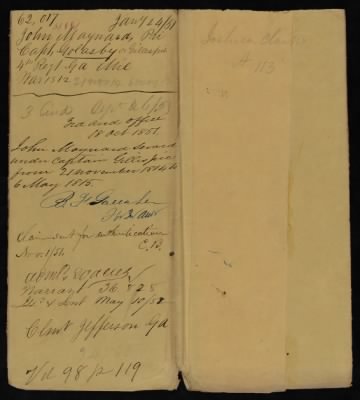 62,017 Jany 24/51
John Maynard, Pri
Capt Goolsby or Gillespie
4th Regt Ga Mil
War 1812
3 Aud
3rd Aud office
18 Oct 1851
John Maynard served
under Captain Gillespie
from 21 November 1814 to
6 May 1815.
Claimant for authentication
Nov 1/51 C.B.
Warrant 36 825
& Sent May 10/52
Clmt Jefferson Ga
Vol 98 p 119
Joshua
A 113